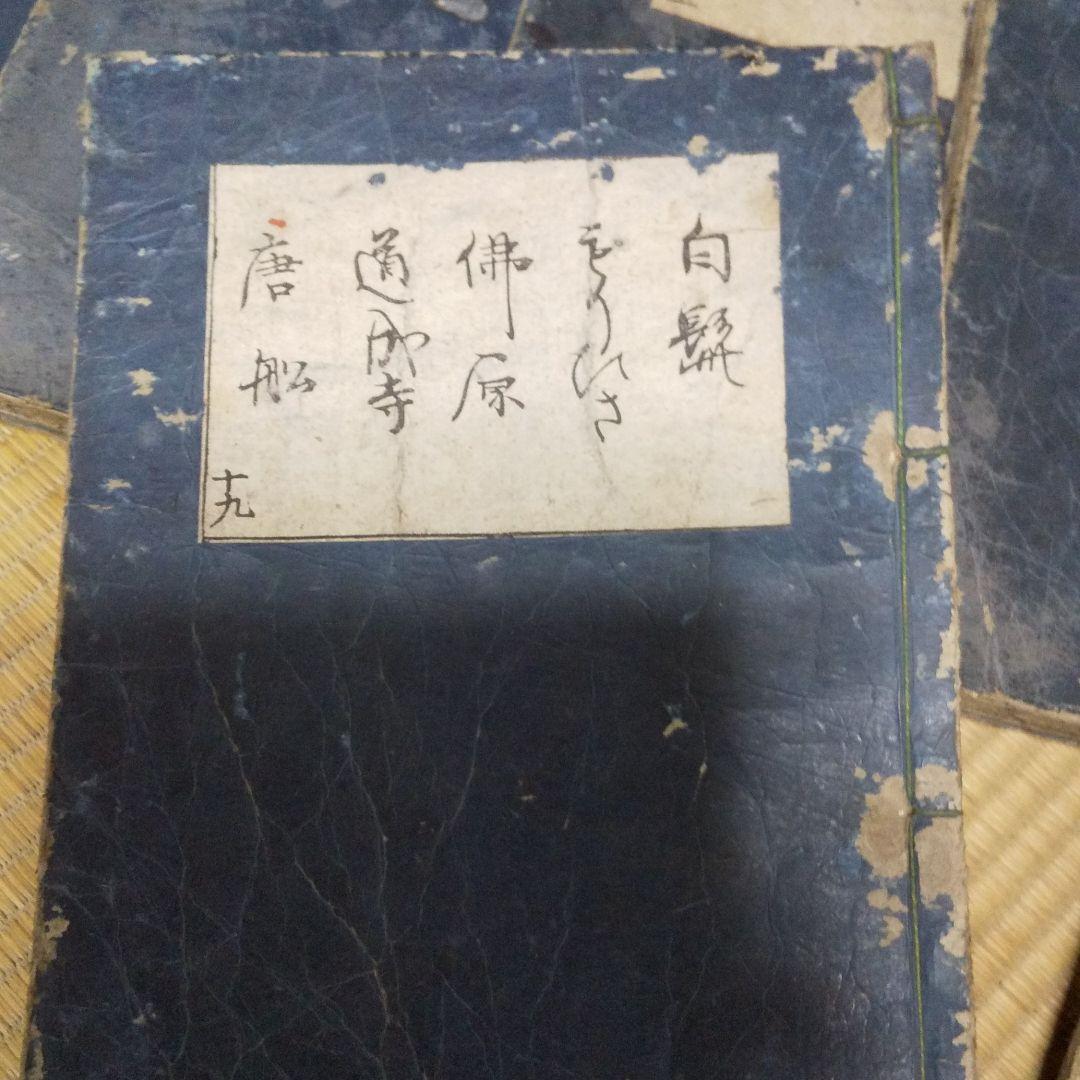 白髭
もりひさ
佛原
道成寺
唐船
十九